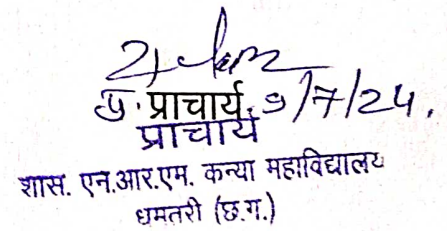 प्र. प्राचार्य 9/7/24.
प्राचार्य
शास. एन.आर.एम. कन्या महाविद्यालय
धमतरी (छ.ग.)